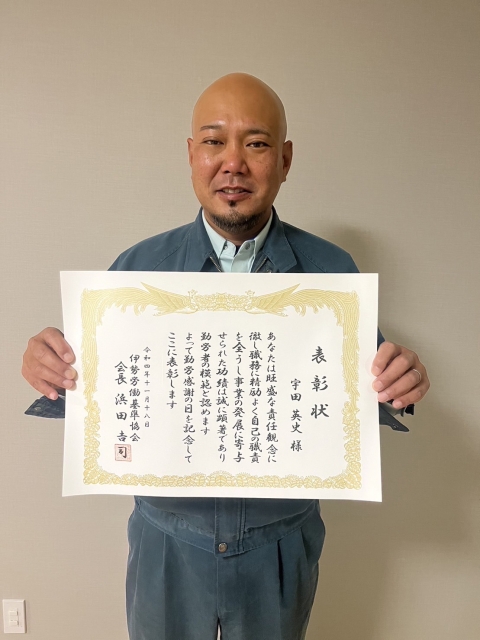 表彰状
宇田 英史 様
あなたは旺盛な責任観念に
徹し職務に精励よく自己の職責
を全うし事業の発展に寄与
せられた功績は誠に顕著であり
勤労者の模範と認めます
よって勤労感謝の日を記念して
ここに表彰します
令和四年十一月十八日
伊勢労働基準協会
会長 浜田 吉司